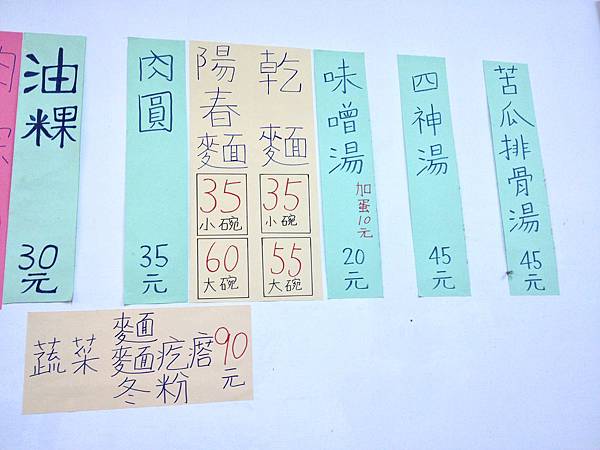 油粿
30
元
肉圓
35
元
陽春麵
35
小碗
60
大碗
乾麵
35
小碗
55
大碗
味噌湯
加蛋10元
20
元
四神湯
45
元
苦瓜排骨湯
45
元
蔬菜
麵
麵疙瘩
冬粉
90
元